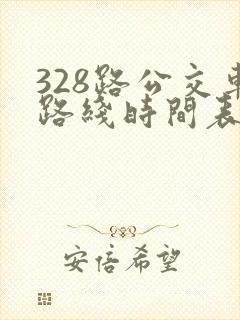 328路公交車
路綫時間表
安倍希望